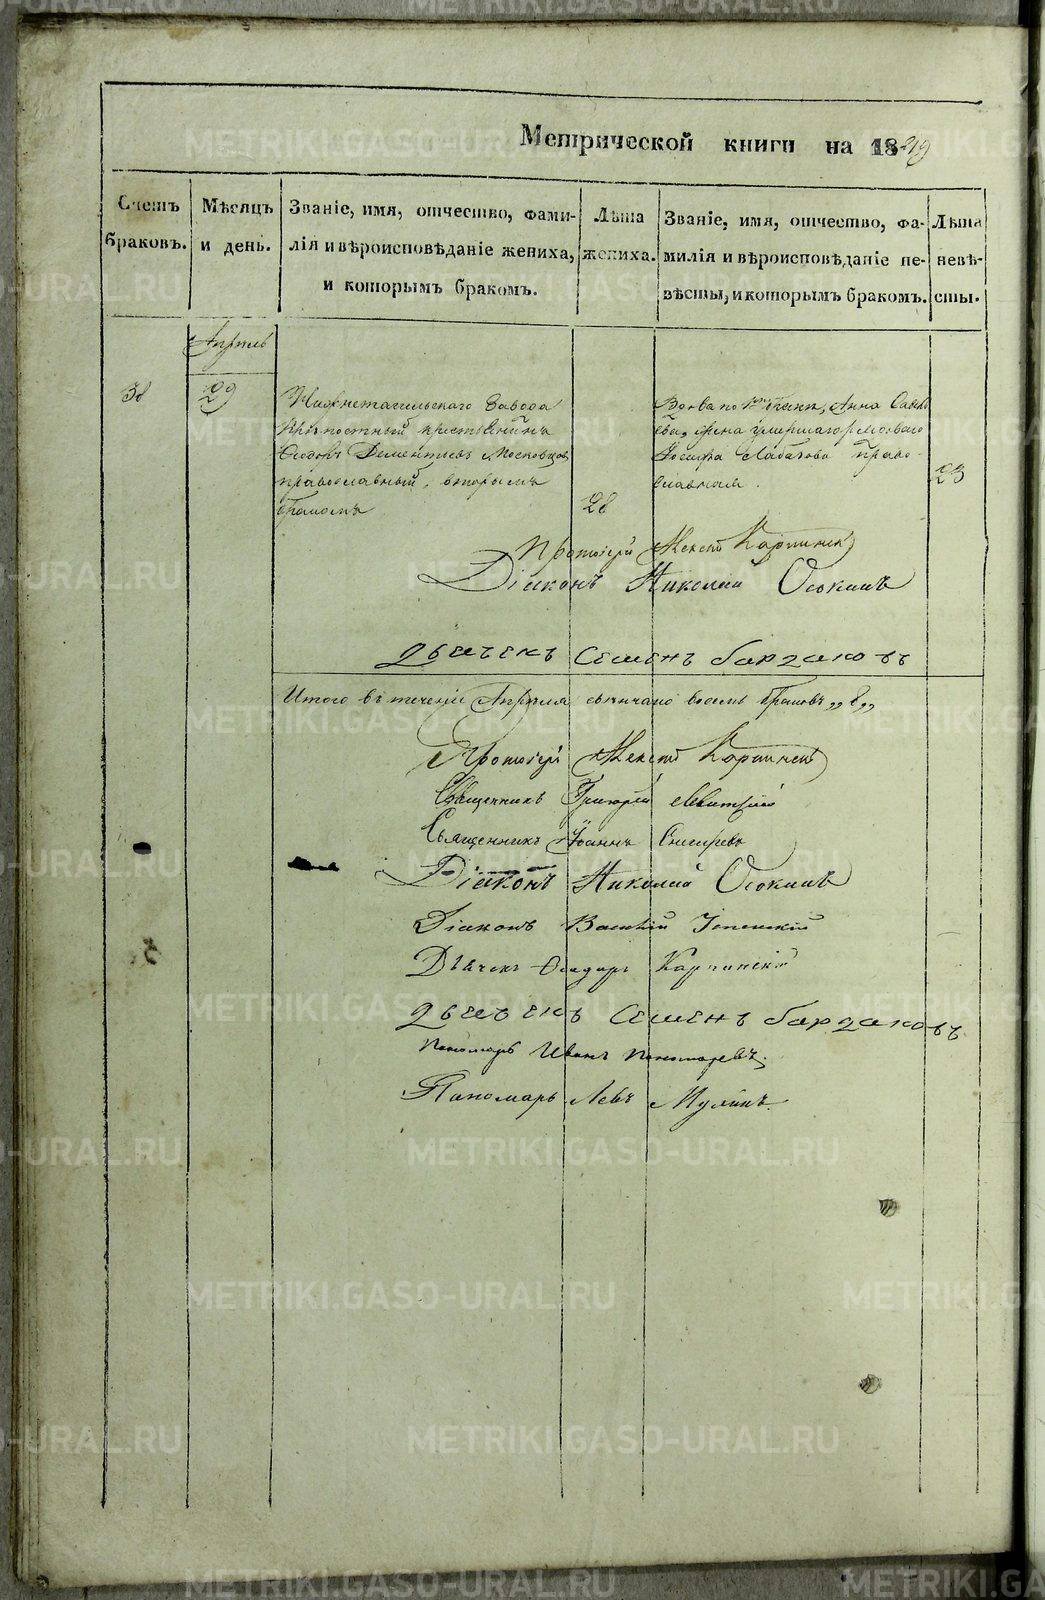 Метрической книги на 1849
Счетъ браковъ.
Мѣсяцъ и день.
Званіе, имя, отчество, фами-
лія и вѣроисповѣданіе жениха,
и которымъ бракомъ.
Лѣта
жениха.
Званіе, имя, отчество, фа-
милія и вѣроисповѣданіе не-
вѣсты, и которымъ бракомъ.
Лѣта
невѣ-
сты.
Апрѣль
38
29
Нижнетагильскаго Завода
крѣпостный крестьянинъ
Ѳеодоръ Дементьевъ Московцовъ
православный, вторымъ
бракомъ
28
Вдова Анна Савель
ева, жена умершаго
Іосифа Лабазова право-
славная.
23
Протоіерей Алексѣй Карпинскій
Діаконъ Николай Осокинъ
Дьячекъ Семенъ Барзаковъ
Итого въ теченіе Апрѣля вѣнчано восемь браковъ „8„
Протоіерей Алексѣй Карпинскій
Священникъ Григорій Левитскій
Священникъ Іоаннъ Снигиревъ
Діаконъ Николай Осокинъ
Діаконъ Василій Успенскій
Дьячекъ Ѳеодоръ Карпинскій
Дьячекъ Семенъ Барзаковъ
Пономарь Иванъ Пономаревъ.
Пономарь Левъ Мулинъ.
METRIKI.GASO-URAL.RU